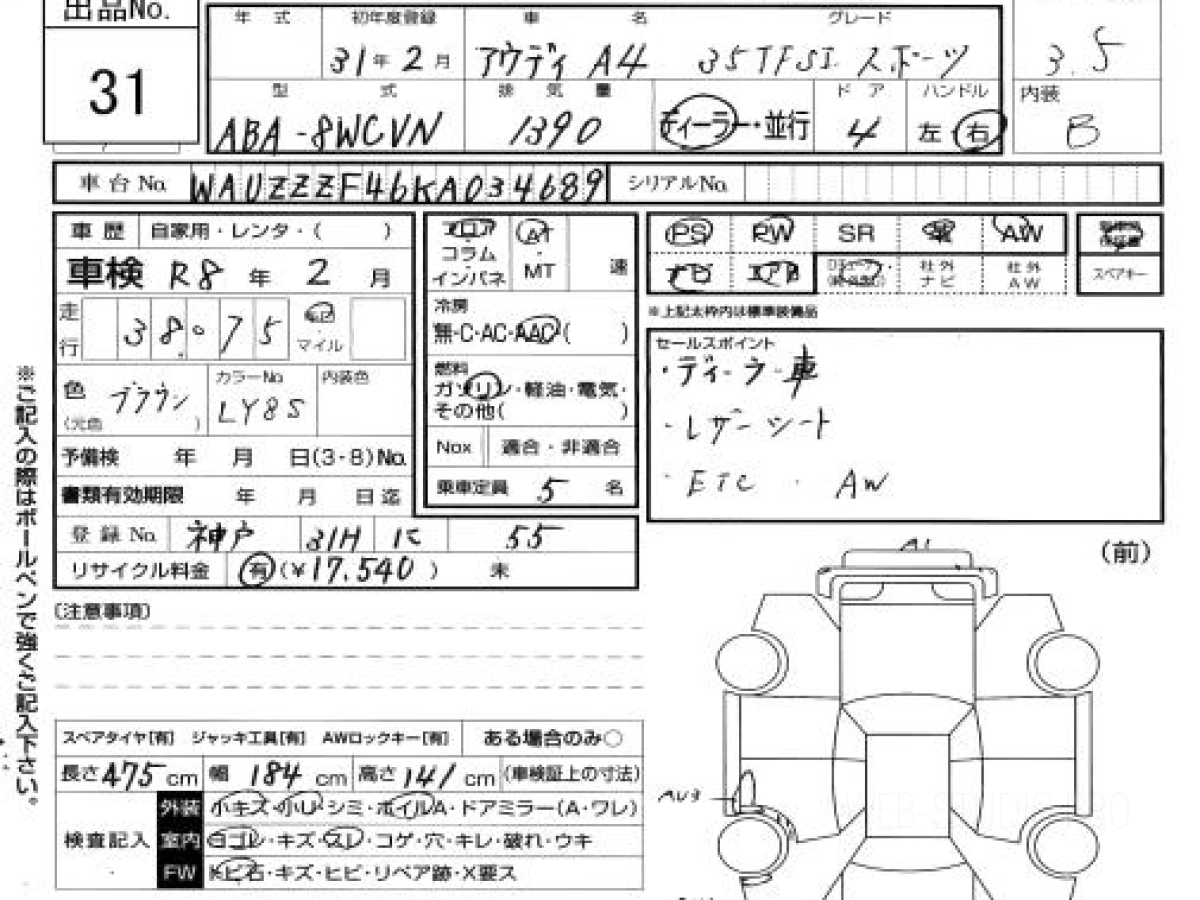 出品No.
31
年 式 初年度登録 車 名 グレード
31年2月 アウディ A4 35TFSI スポーツ
3.5
型 式 排 気 量 ドア ハンドル 内装
ABA-8WCVN 1390 ディーラー・並行 4 左・右 B
車台No. WAUZZZF46KA034689 シリアルNo.
車歴 自家用・レンタ・( )
車検 R8 年 2 月
走行 38.75 マイル
色 ブラウン カラーNo LY8S 内装色
(元色 )
予備検 年 月 日(3-8)No.
書類有効期限 年 月 日迄
登録No. 神戸 31H に 55
リサイクル料金 有(¥17.540) 未
フロア
コラム
インパネ
AT
MT
速
冷房
無・C・AC・AAC( )
燃料
ガソリン・軽油・電気・
その他( )
Nox 適合・非適合
乗車定員 5 名
PS PW SR 革 AW
ナビ エアB 社外ナビ 社外AW スペアキー
※上記太枠内は標準装備品
セールスポイント
・ディーラー車
・レザーシート
・ETC ・AW
※ご記入の際はボールペンで強くご記入下さい。
(注意事項)
(前)
A1
スペアタイヤ[有] ジャッキ工具[有] AWロックキー[有] ある場合のみ○
長さ475cm 幅184cm 高さ141cm (車検証上の寸法)
検査記入
外装 小キズ・小U・シミ・ホイルA・ドアミラー(A・ワレ)
室内 ヨゴレ・キズ・スレ・コゲ・穴・キレ・破れ・ウキ
FW トビ石・キズ・ヒビ・リペア跡・X要ス
AU3